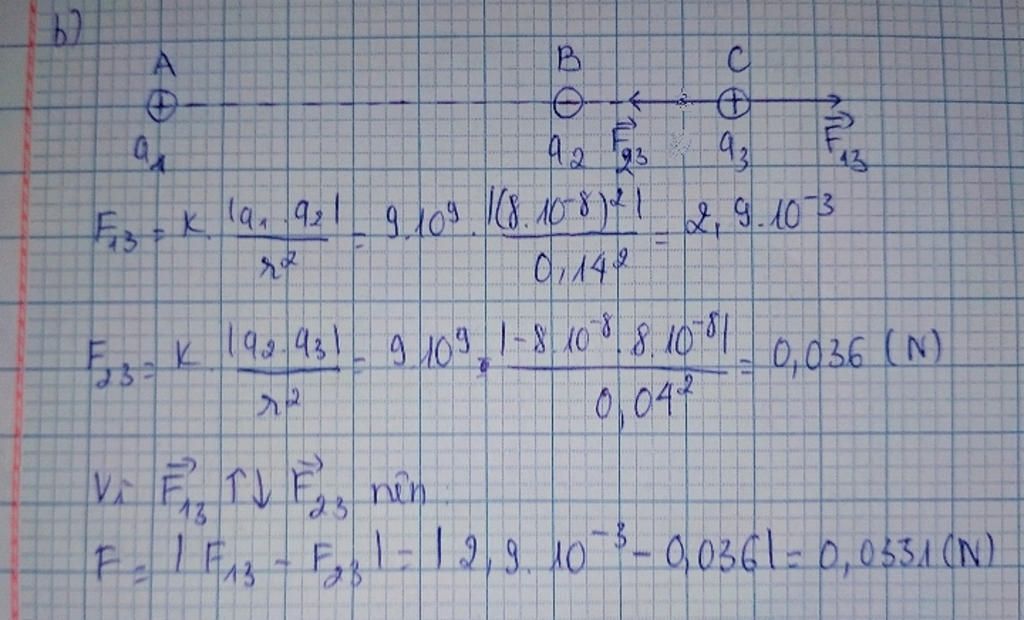 b)
A B C
⊕ ⊖ ⊕
q₁ q₂ F⃗₂₃ q₃ F⃗₁₃
F₁₃ = K. |q₁.q₂| / r² = 9.10⁹. |(8.10⁻⁸)²| / 0,14² = 2,9.10⁻³
F₂₃ = K |q₂.q₃| / r² = 9.10⁹. |-8.10⁻⁸.8.10⁻⁸| / 0,04² = 0,036 (N)
Vì F⃗₁₃ ↑↓ F⃗₂₃ nên.
F = |F₁₃ - F₂₃| = |2,9.10⁻³ - 0,036| = 0,0331 (N)